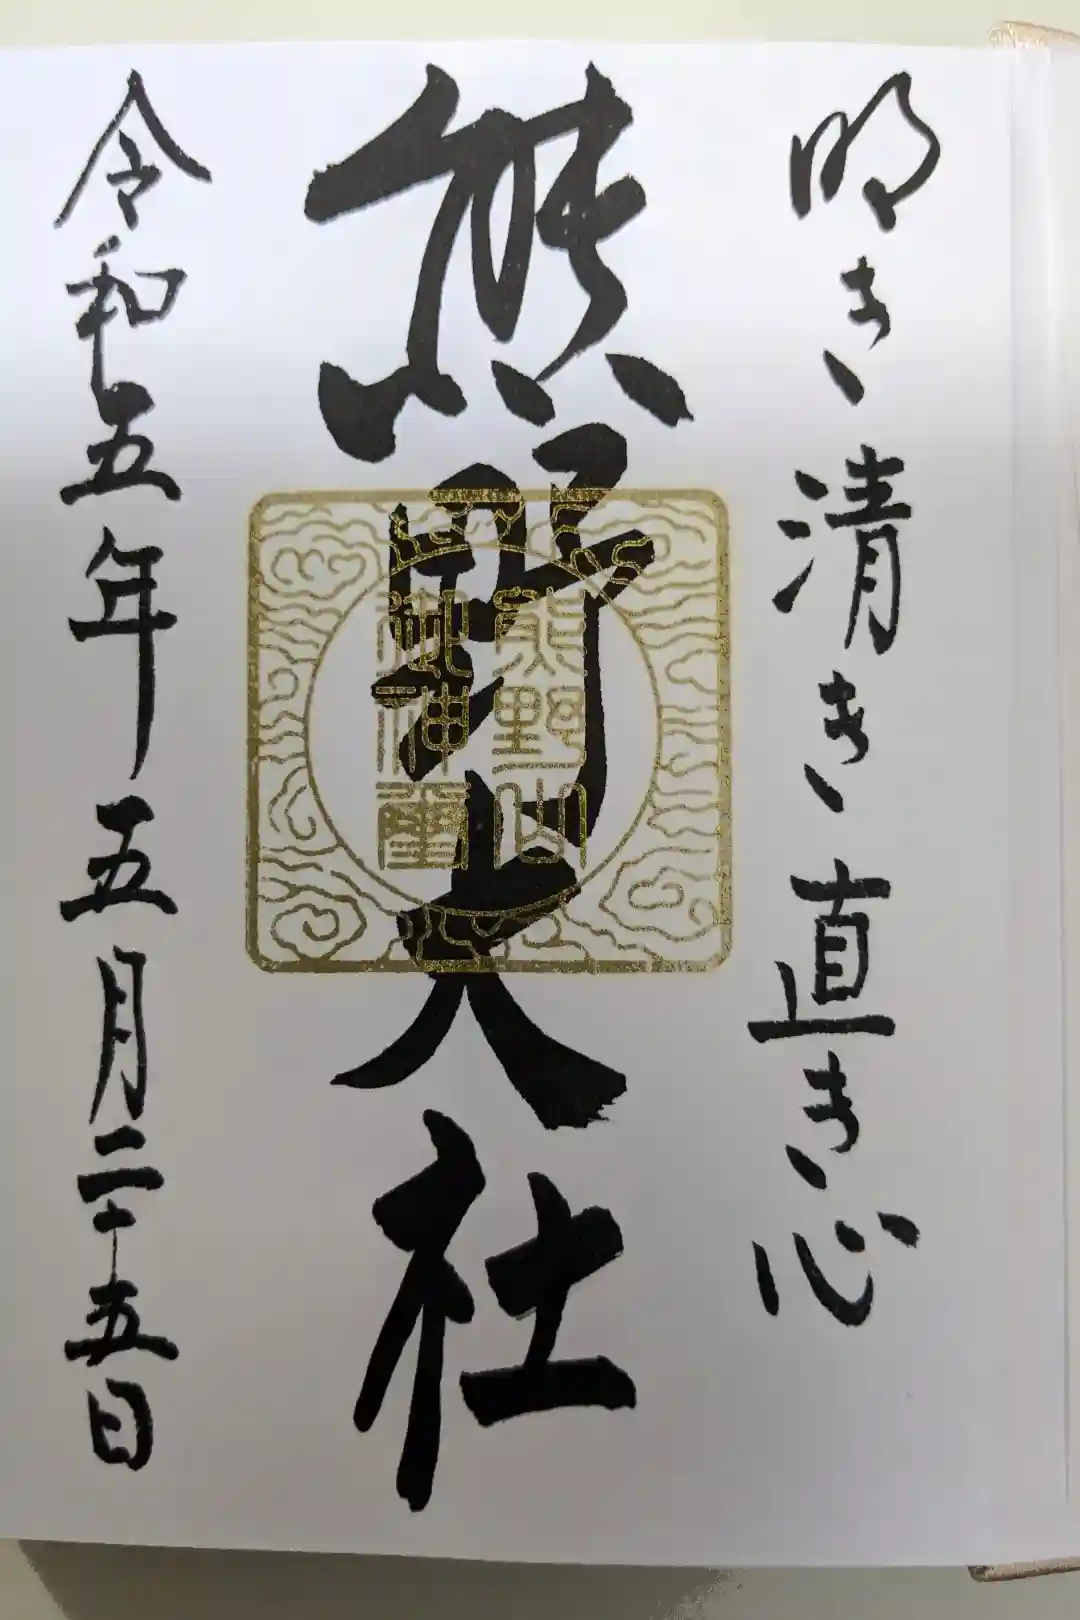 明き清き直き心
熊野大社
熊野山
御神璽
令和五年五月二十五日